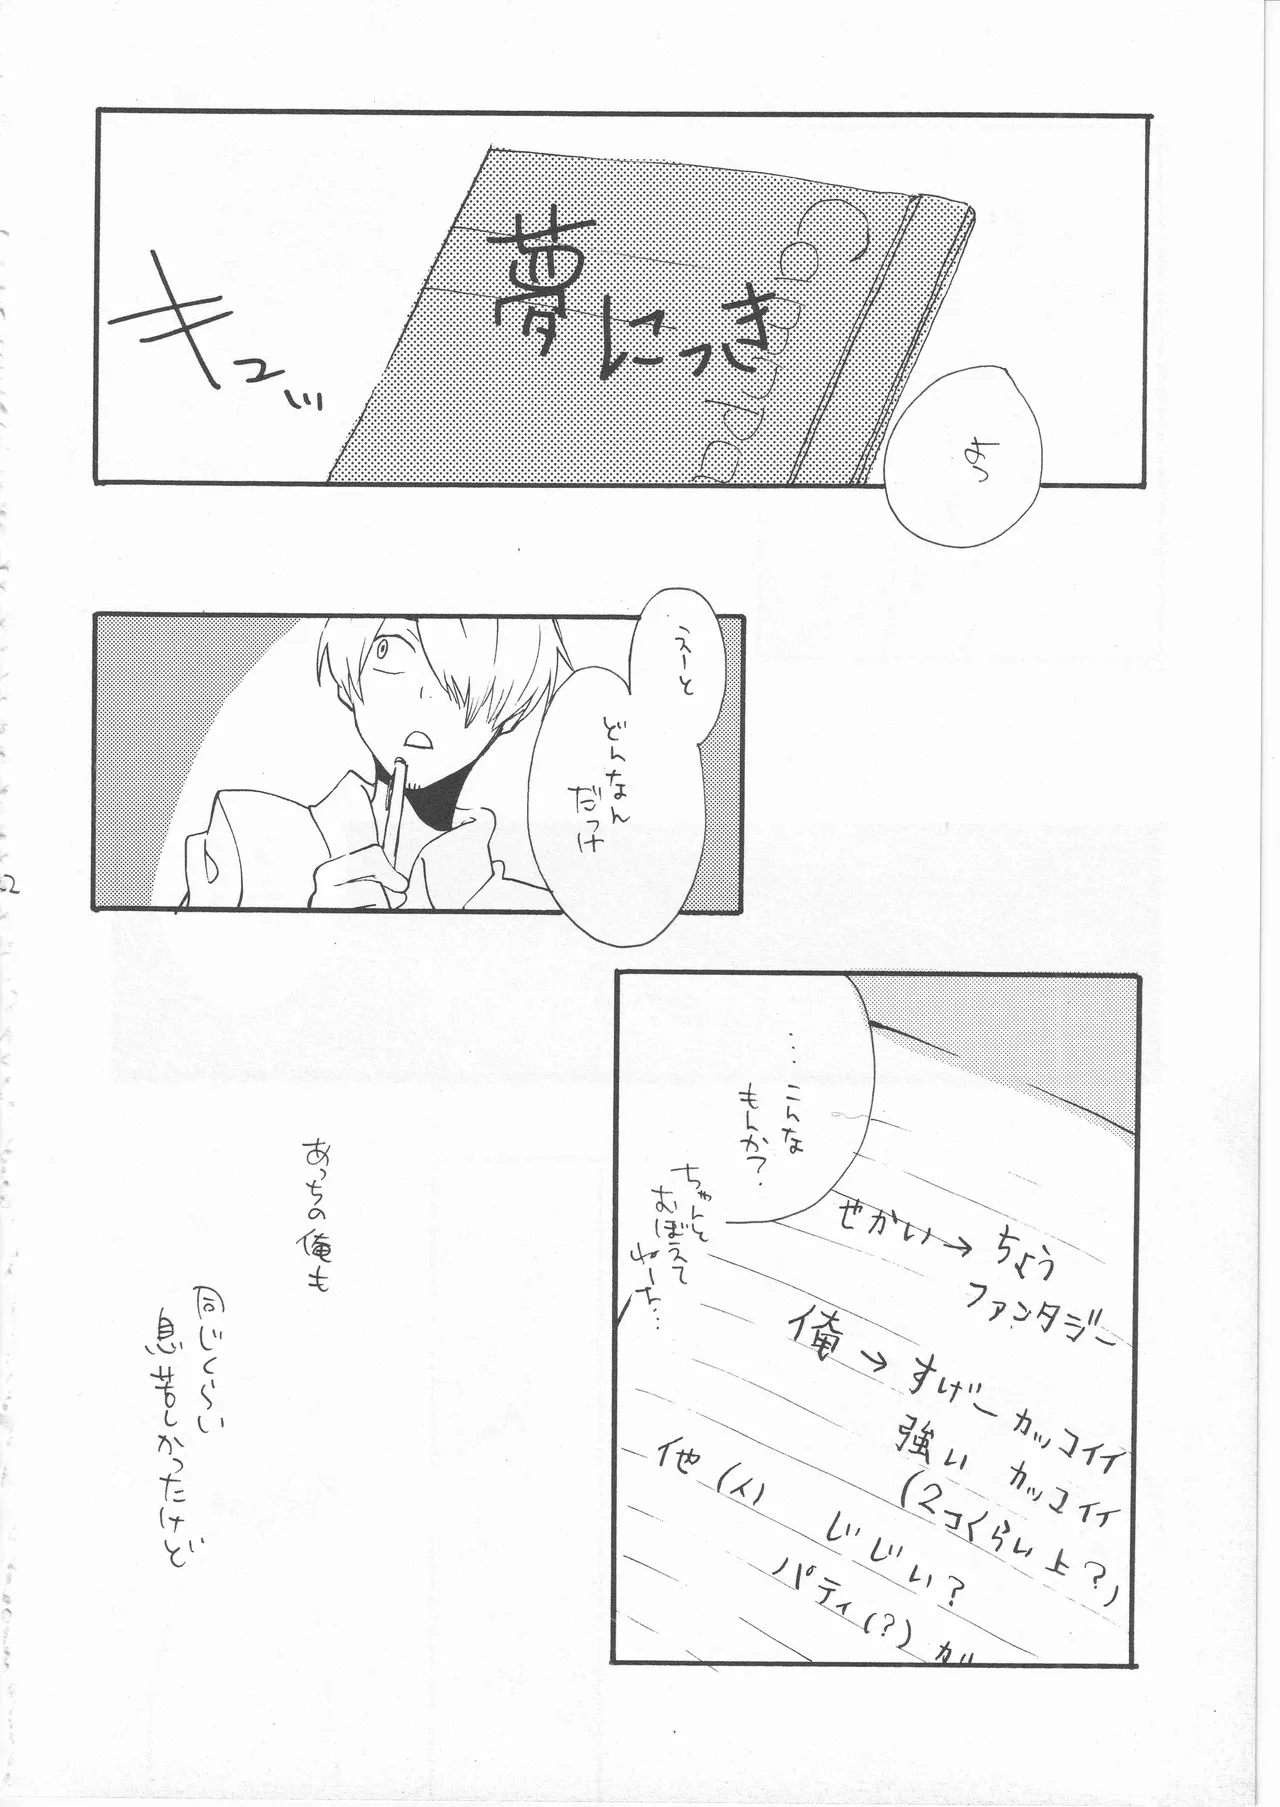 夢にっき
キュッ
よっ
えーと
どんなん
だっけ
…こんな
もんか？
ちゃんと
むぼえて
ねーな…
せかい→ちょう
ファンタジー
俺→すげーカッコイイ
強い カッコイイ
(2コくらい上？)
他(人) じじい？
パティ(？) が
あっちの俺も
同じくらい
息苦しかったけど